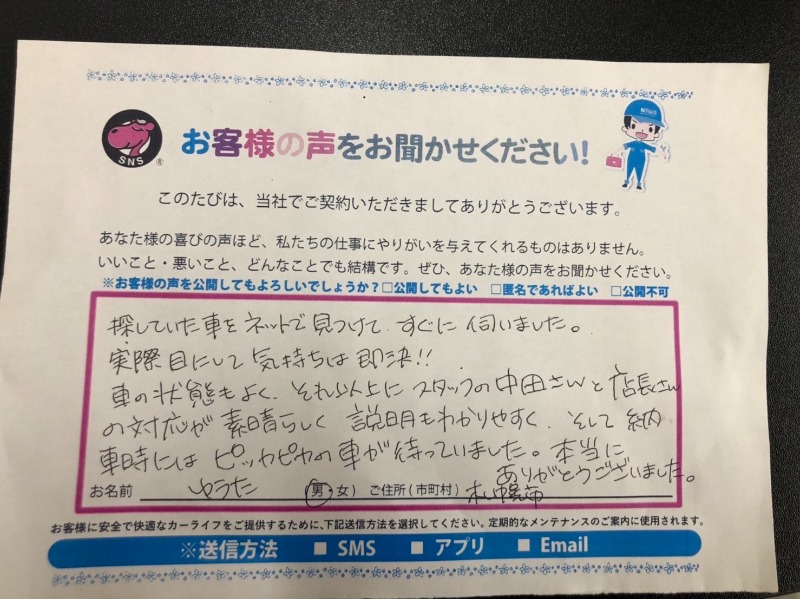 SNS
®
お客様の声をお聞かせください!
このたびは、当社でご契約いただきましてありがとうございます。
あなた様の喜びの声ほど、私たちの仕事にやりがいを与えてくれるものはありません。
いいこと・悪いこと、どんなことでも結構です。ぜひ、あなた様の声をお聞かせください。
※お客様の声を公開してもよろしいでしょうか?□公開してもよい □匿名であればよい □公開不可
探していた車をネットで見つけて すぐに伺いました。
実際目にして気持ちは即決!!
車の状態もよく、それ以上にスタッフの中田さんと店長さん
の対応が素晴らしく 説明もわかりやすく、そして納
車時には ピッカピカの車が待っていました。本当に
ありがとうございました。
お名前 ゆうた (男・女) ご住所(市町村) 札幌市
お客様に安全で快適なカーライフをご提供するために、下記送信方法を選択してください。定期的なメンテナンスのご案内に使用されます。
※送信方法 ■ SMS ■ アプリ ■ Email